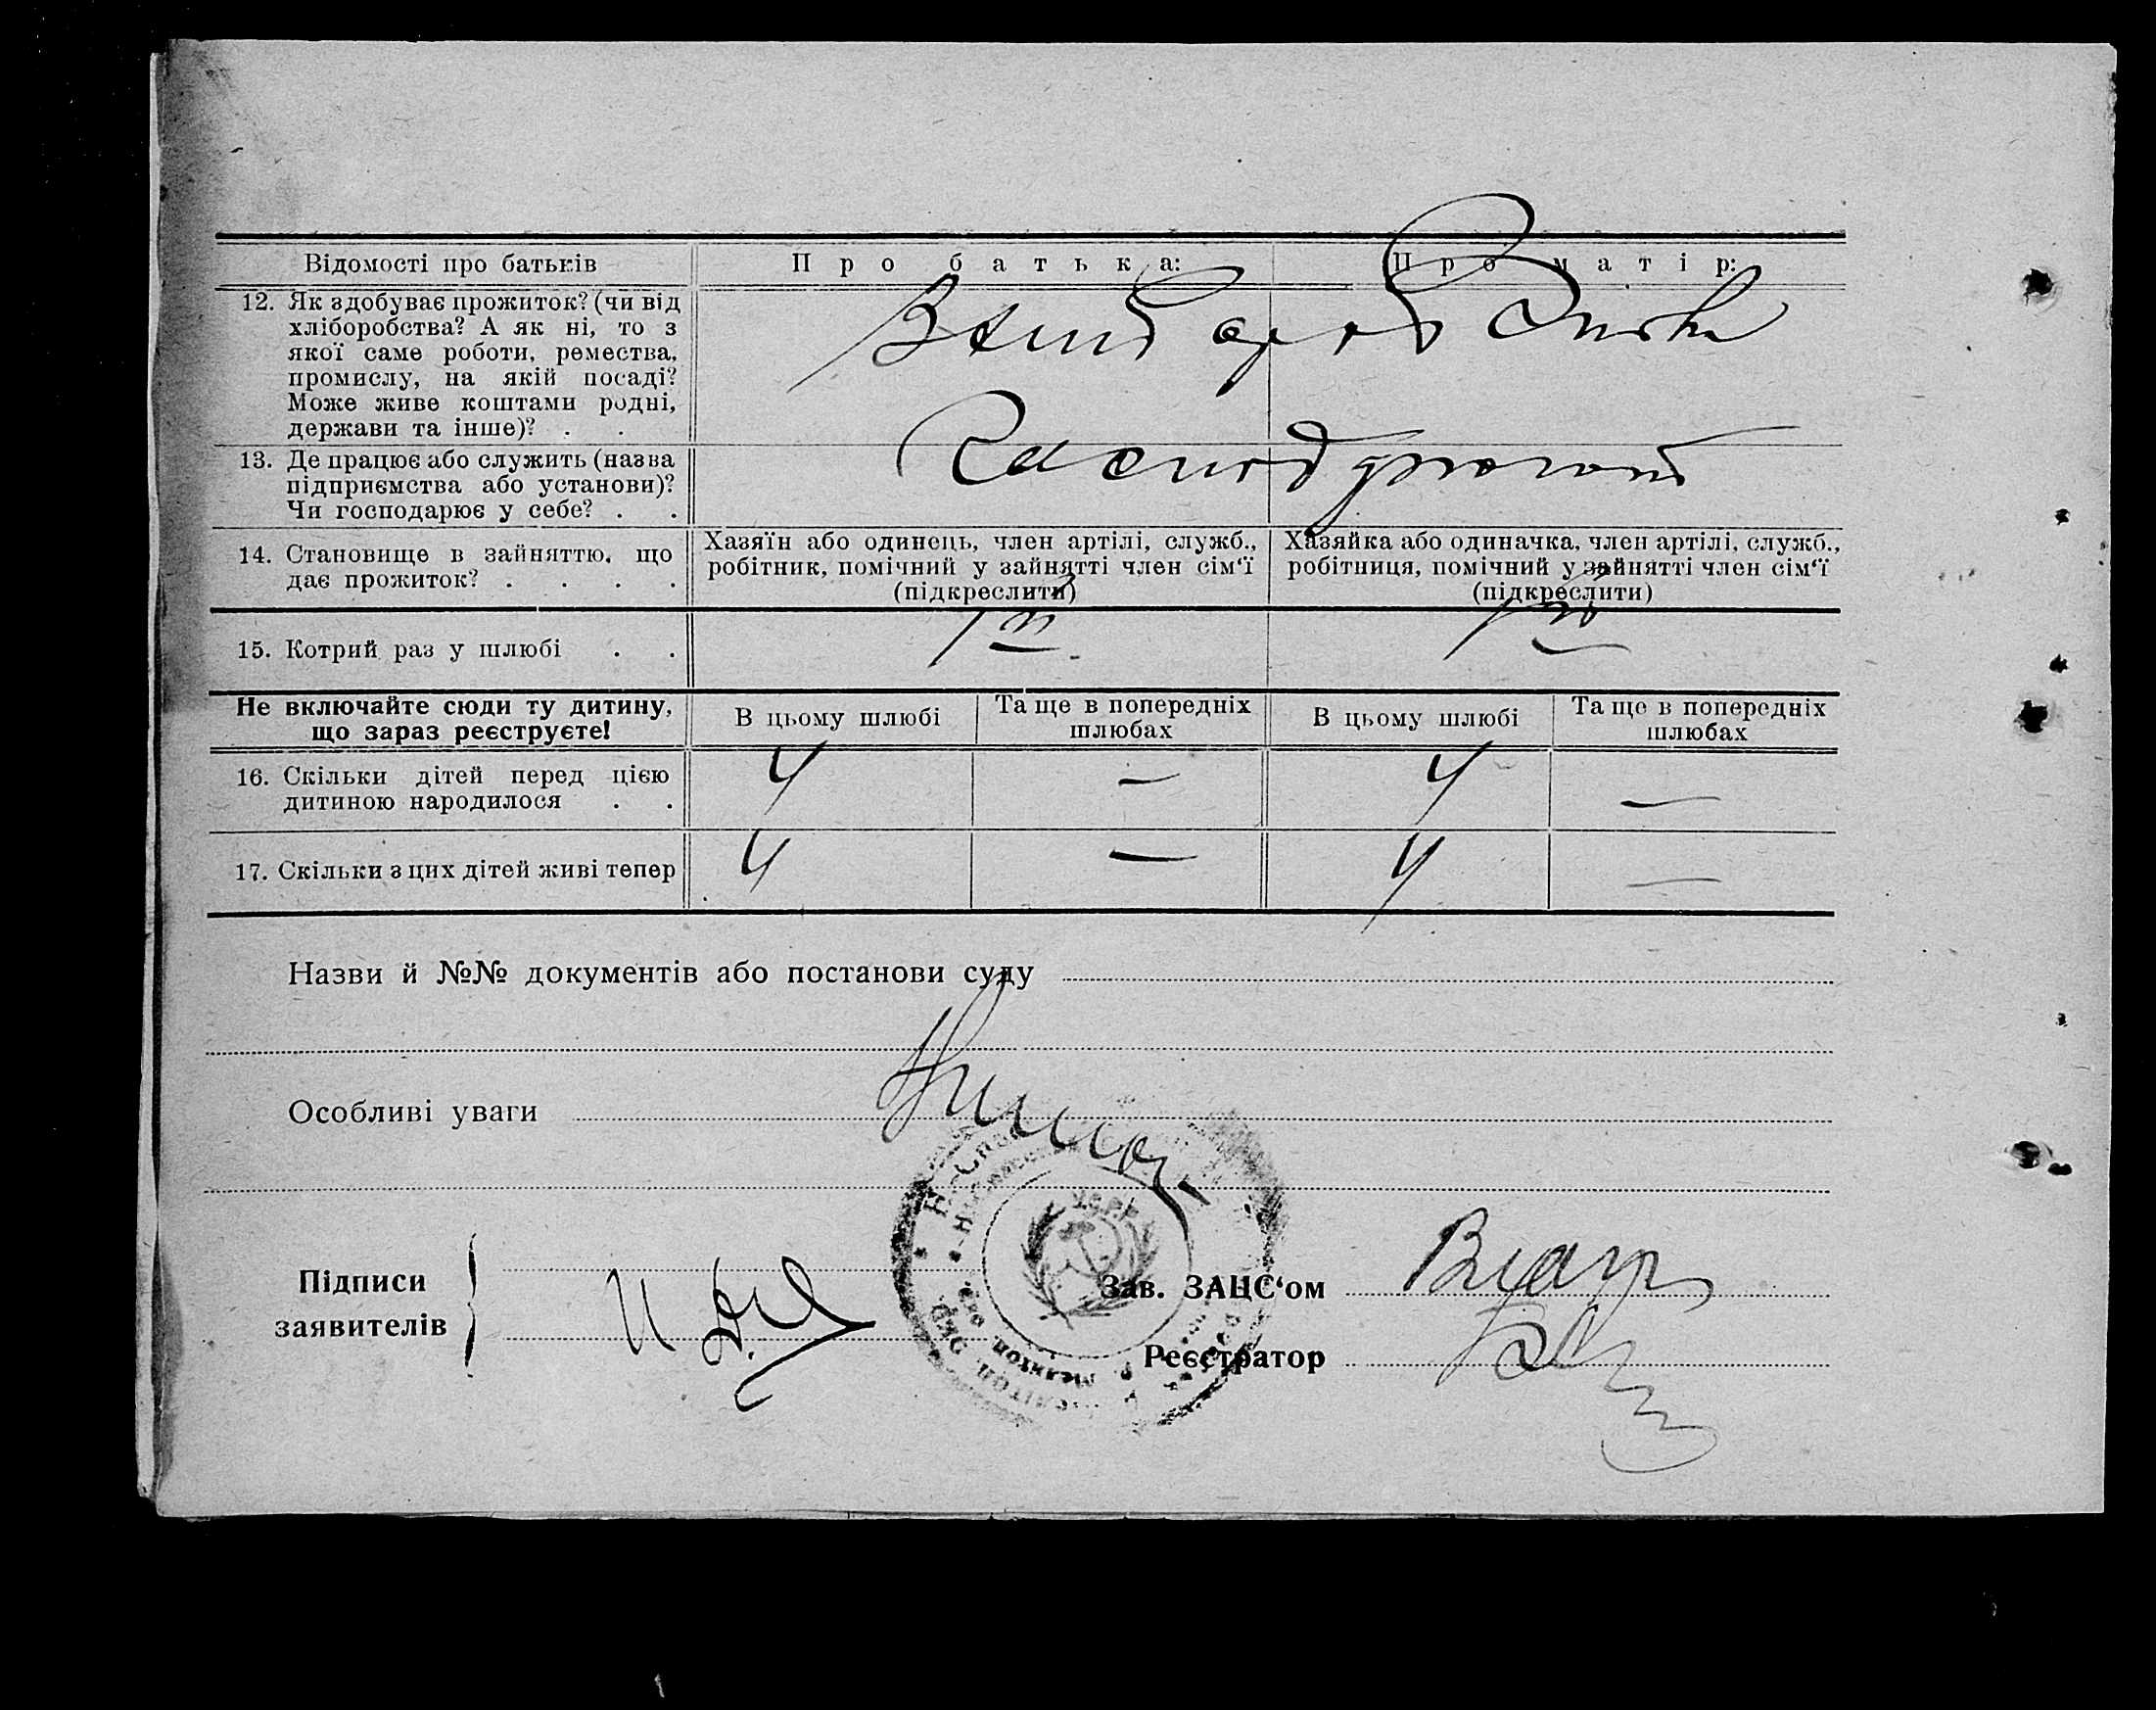 Відомості про батьків
Про батька:
Про матір:
12. Як здобуває прожиток? (чи від
хліборобства? А як ні, то з
якої саме роботи, ремества,
промислу, на якій посаді?
Може живе коштами родні,
держави та інше)? . .
13. Де працює або служить (назва
підприємства або установи)?
Чи господарює у себе? . .
14. Становище в зайняттю, що
дає прожиток? . . . .
Хазяїн або одинець, член артілі, служб.,
робітник, помічний у зайнятті член сім‘ї
(підкреслити)
Хазяйка або одиначка, член артілі, служб.,
робітниця, помічний у зайнятті член сім‘ї
(підкреслити)
15. Котрий раз у шлюбі . .
1й
1й
Не включайте сюди ту дитину,
що зараз реєструєте!
В цьому шлюбі
Та ще в попередніх
шлюбах
В цьому шлюбі
Та ще в попередніх
шлюбах
16. Скільки дітей перед цією
дитиною народилося . .
4
—
4
—
17. Скільки з цих дітей живі тепер
4
—
4
—
Назви й №№ документів або постанови суду
Особливі уваги
У.С.Р.Р.
Підписи
заявителів
Зав. ЗАЦС‘ом
Реєстратор